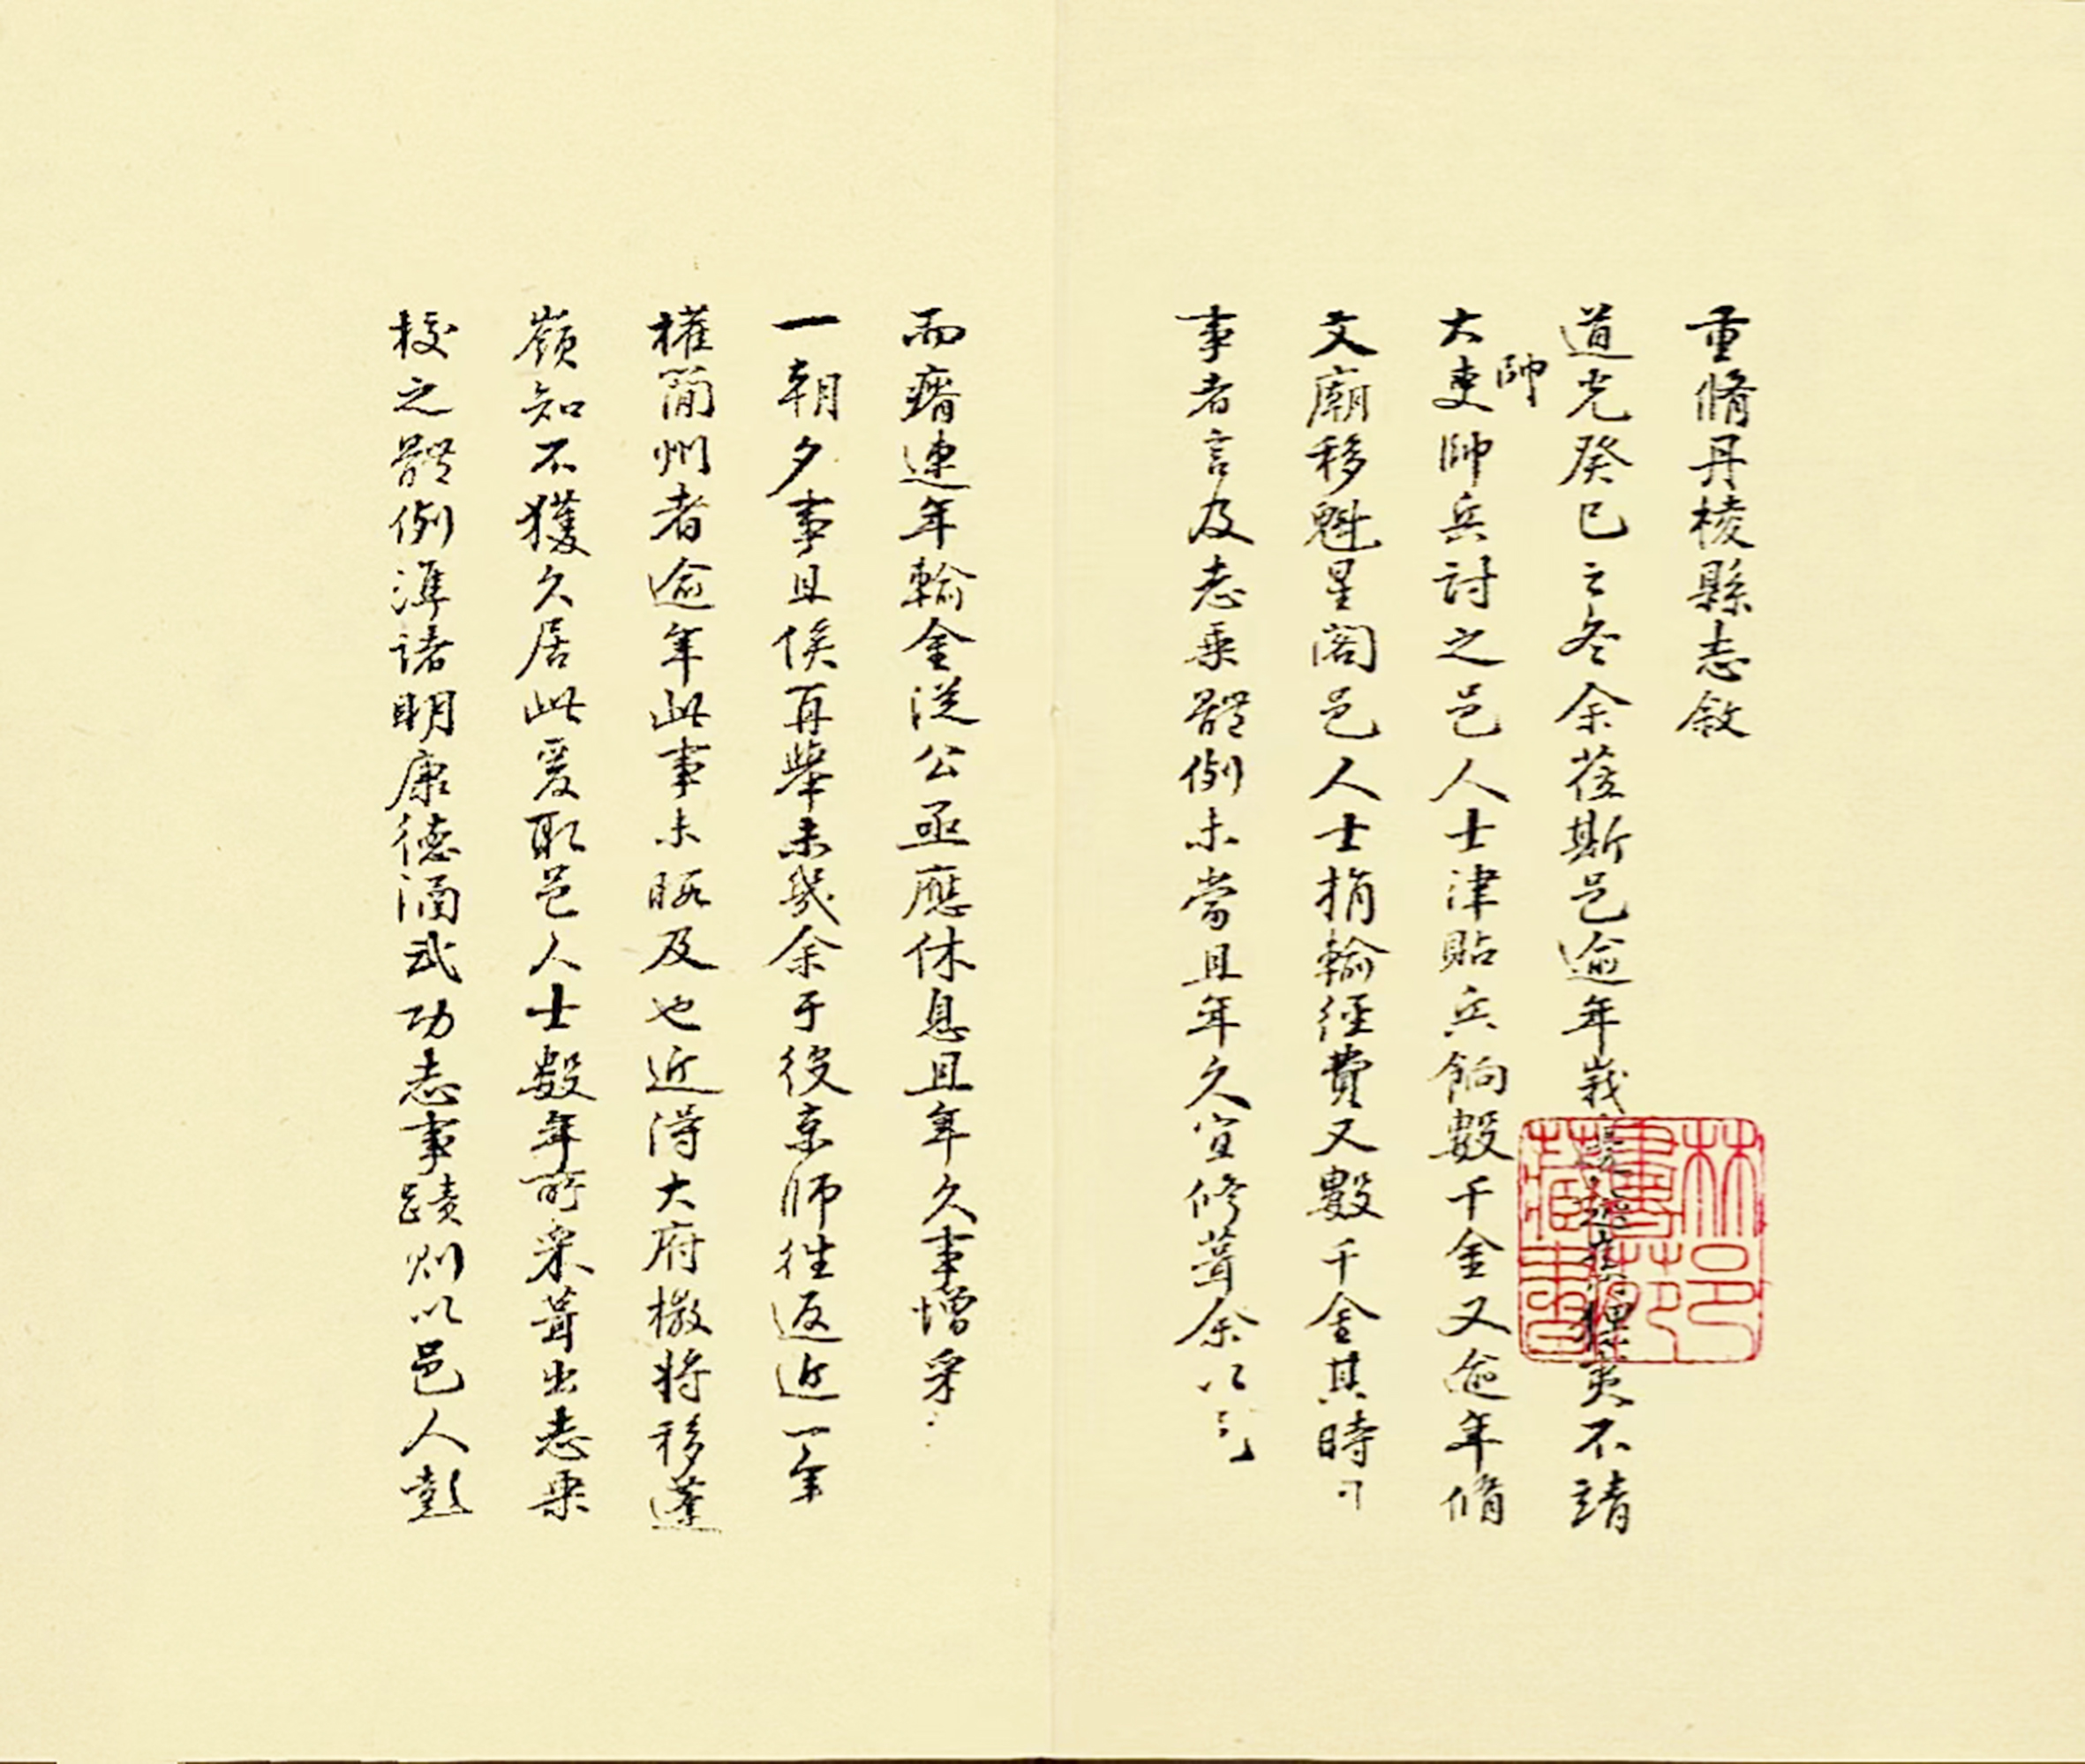 重脩丹棱縣志敘
道光癸巳之冬余莅斯邑逾年峩越嶲猓夷不靖
帥
大吏帥兵討之邑人士津貼兵餉數千金又逾年脩
文廟移魁星閣邑人士捐輸經費又數千金其時
事者言及志乘體例未當且年久宜修葺余以
而瘠連年輸金從公亟應休息且年久事增采
一朝夕事且俟再舉未幾余于役京師往返近一年
權簡州者逾年此事未暇及也近得大府檄將移蓬
嶺知不獲久居此爰取邑人士數年所采葺出志乘
校之體例準諸明康德涵武功志事蹟則以邑人彭
林邑
書
藏書